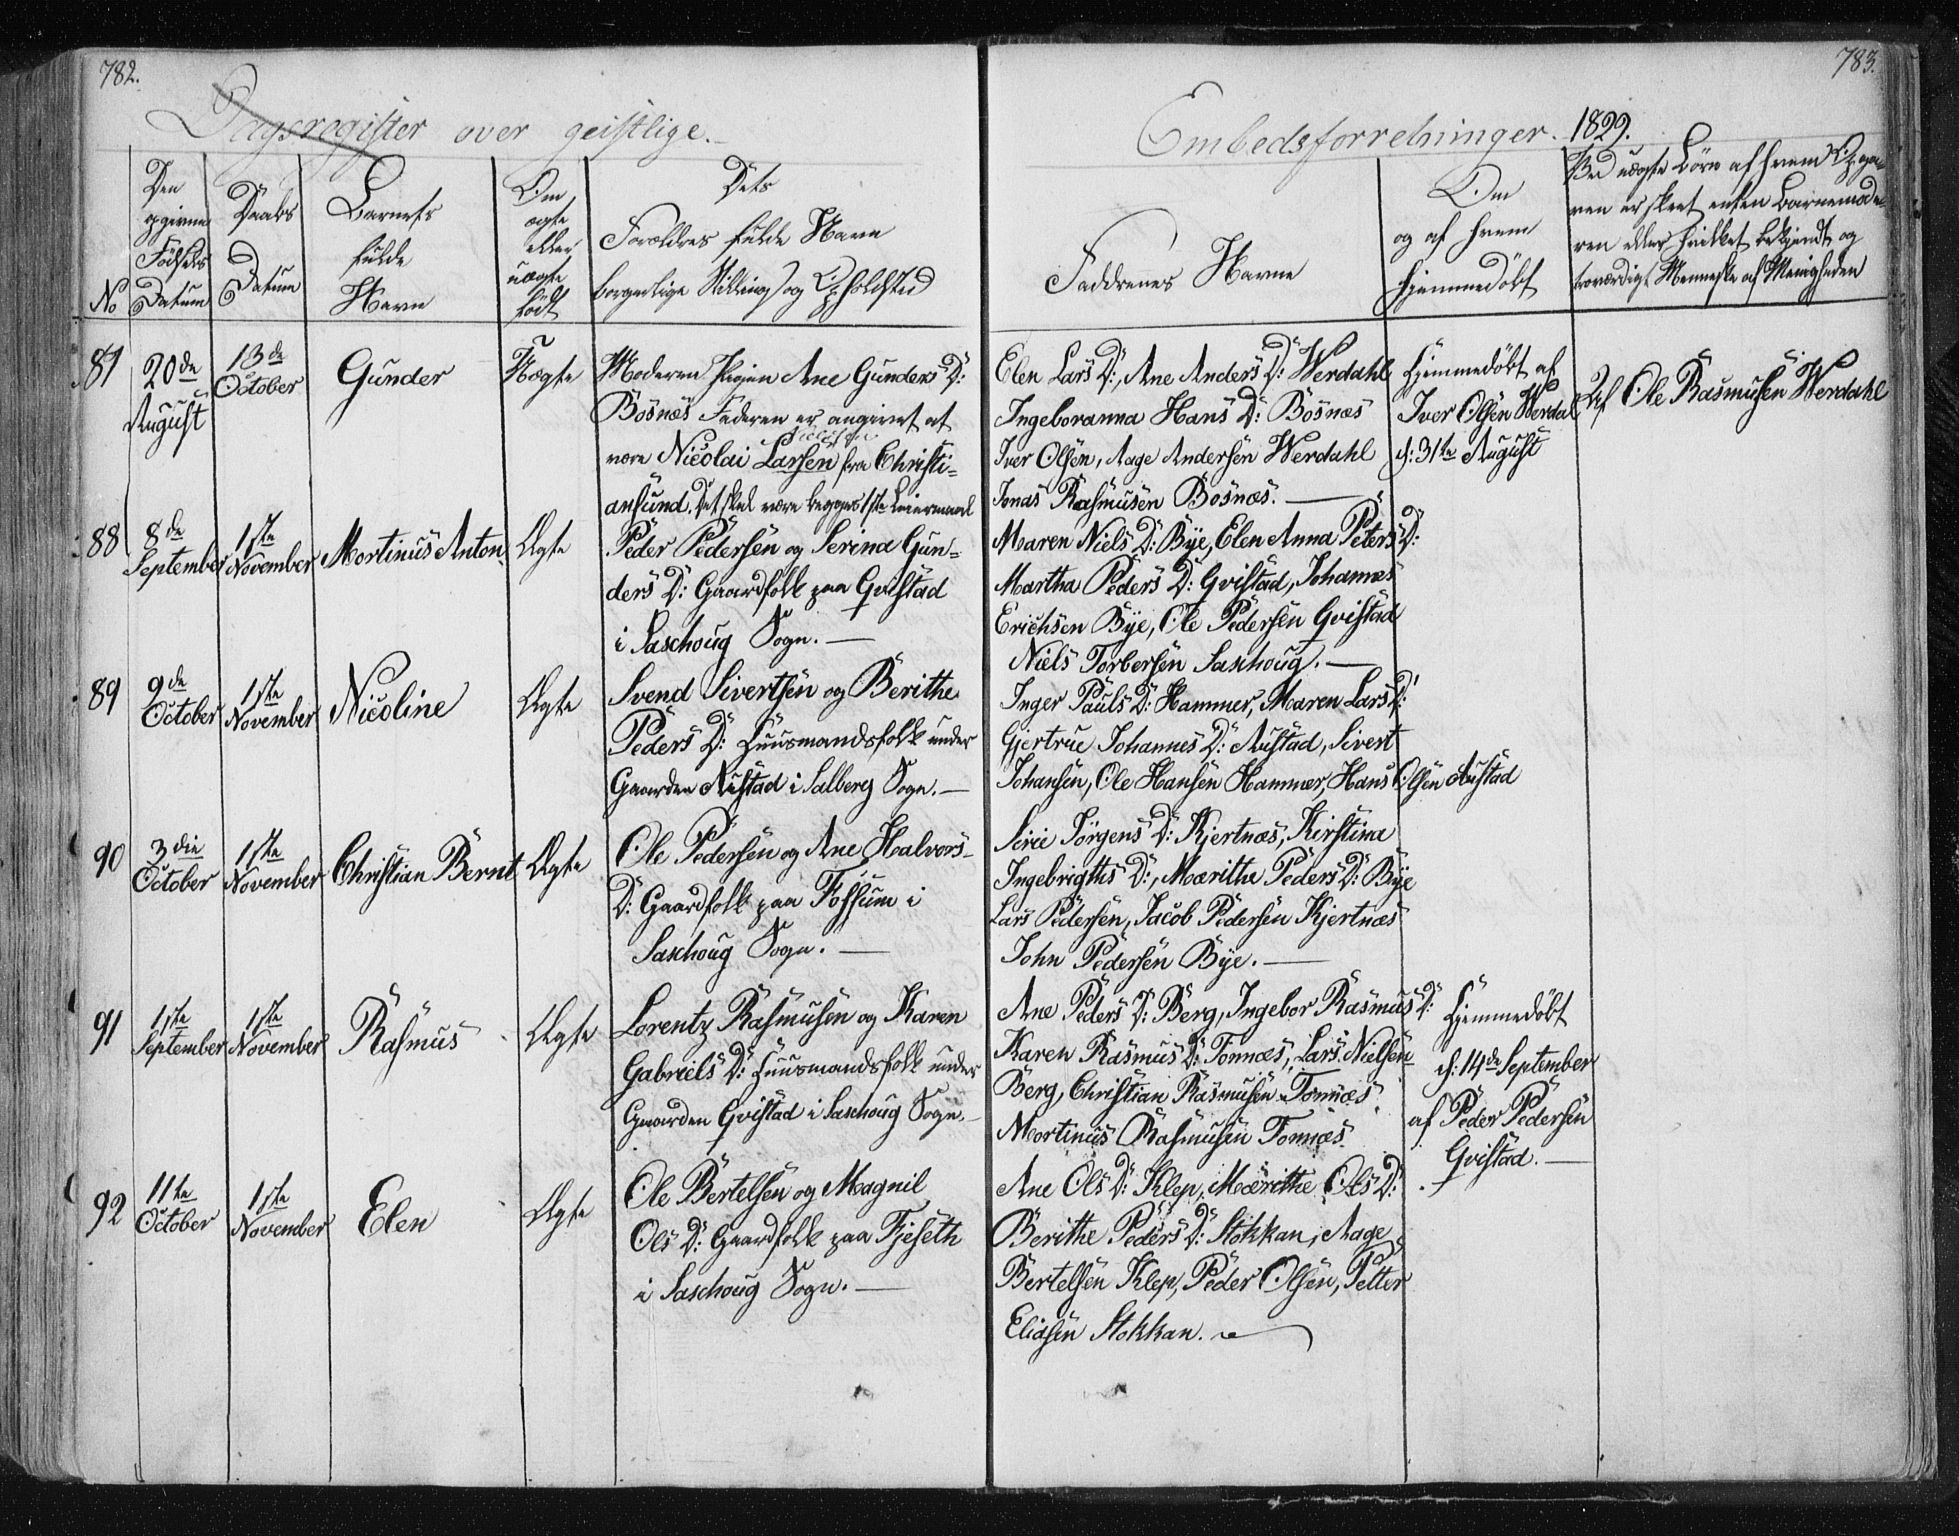 782.
783.
Dagsregister over geistlige.
Embedsforretninger. 1829.
No
Den opgivne Födsels Datum
Daabs Datum
Barnets fulde Navn
Om ægte eller uægte födt
Dets
Forældres fulde Navn
borgerlige Stilling og Opholdsted
Faddrenes Navne
Om
og af hvem
hjemmedöbt
Ved uægte Börn af hvem Opga-
ven er skeet enten Barnemode-
ren eller hvilket bekjendt og
troværdigt Menneske af Menigheden
87
20de August
13de October
Gunder
Uægte
Moderen Pigen Ane Gunders D:
Bosnæs Faderen er angivet at
være Nicolai Larsen fra Christi-
ansund, Det skal være begges 1ste Leiermaal
Elen Lars D:, Ane Anders D: Werdahl
Ingeboranna Hans D: Bosnæs
Iver Olsen, Aage Andersen Werdahl
Jonas Rasmusen Bosnæs.
Hjemmedöbt af
Iver Olsen Werdal
d: 31te August
Af Ole Rasmusen Werdahl
88
8de September
1ste November
Mortinus Anton
Ægte
Peder Pedersen og Serina Gun-
ders D: Gaardfolk paa Gvistad
i Saxhoug Sogn.
Maren Niels D: Bye, Elen Anna Peters D:
Martha Peders D: Gvistad, Johannes
Erichsen Bye, Ole Pedersen Gvistad
Niels Torbersen Saxhoug.
89
9de October
1ste November
Nicoline
Ægte
Svend Sivertsen og Berithe
Peders D: Huusmandsfolk under
Gaarden Austad i Salberg Sogn.
Inger Pauls D: Hammer, Maren Lars D:
Gjertrue Johannes D: Austad, Sivert
Johansen, Ole Hansen Hammer, Hans Olsen Austad
90
3die October
1ste November
Christian Bernt
Ægte
Ole Pedersen og Ane Halvors-
D: Gaardfolk paa Fossum i
Saxhoug Sogn.
Sirie Jörgens D: Kjertnæs, Kirstina
Ingebrigths D:, Mærithe Peders D: Bye
Lars Pedersen, Jacob Pedersen Kjertnæs
John Pedersen Bye.
91
1ste September
1ste November
Rasmus
Ægte
Lorentz Rasmusen og Karen
Gabriels D: Huusmandsfolk under
Gaarden Gvistad i Saxhoug Sogn.
Ane Peders D: Berg, Ingebor Rasmus D:
Karen Rasmus D: Tonnæs, Lars Nielsen
Berg, Christian Rasmusen Tonnæs
Mortinus Rasmusen Tonnæs
Hjemmedöbt
d: 14de September
af Peder Pedersen
Gvistad.
92
11te October
1ste November
Elen
Ægte
Ole Bertelsen og Magnil
Ols D: Gaardfolk paa Fjeseth
i Saxhoug Sogn.
Ane Ols D: Klep, Mærithe Ols D:
Berithe Peders D: Stokkan, Aage
Bertelsen Klep, Peder Olsen, Petter
Eliasen Stokkan.